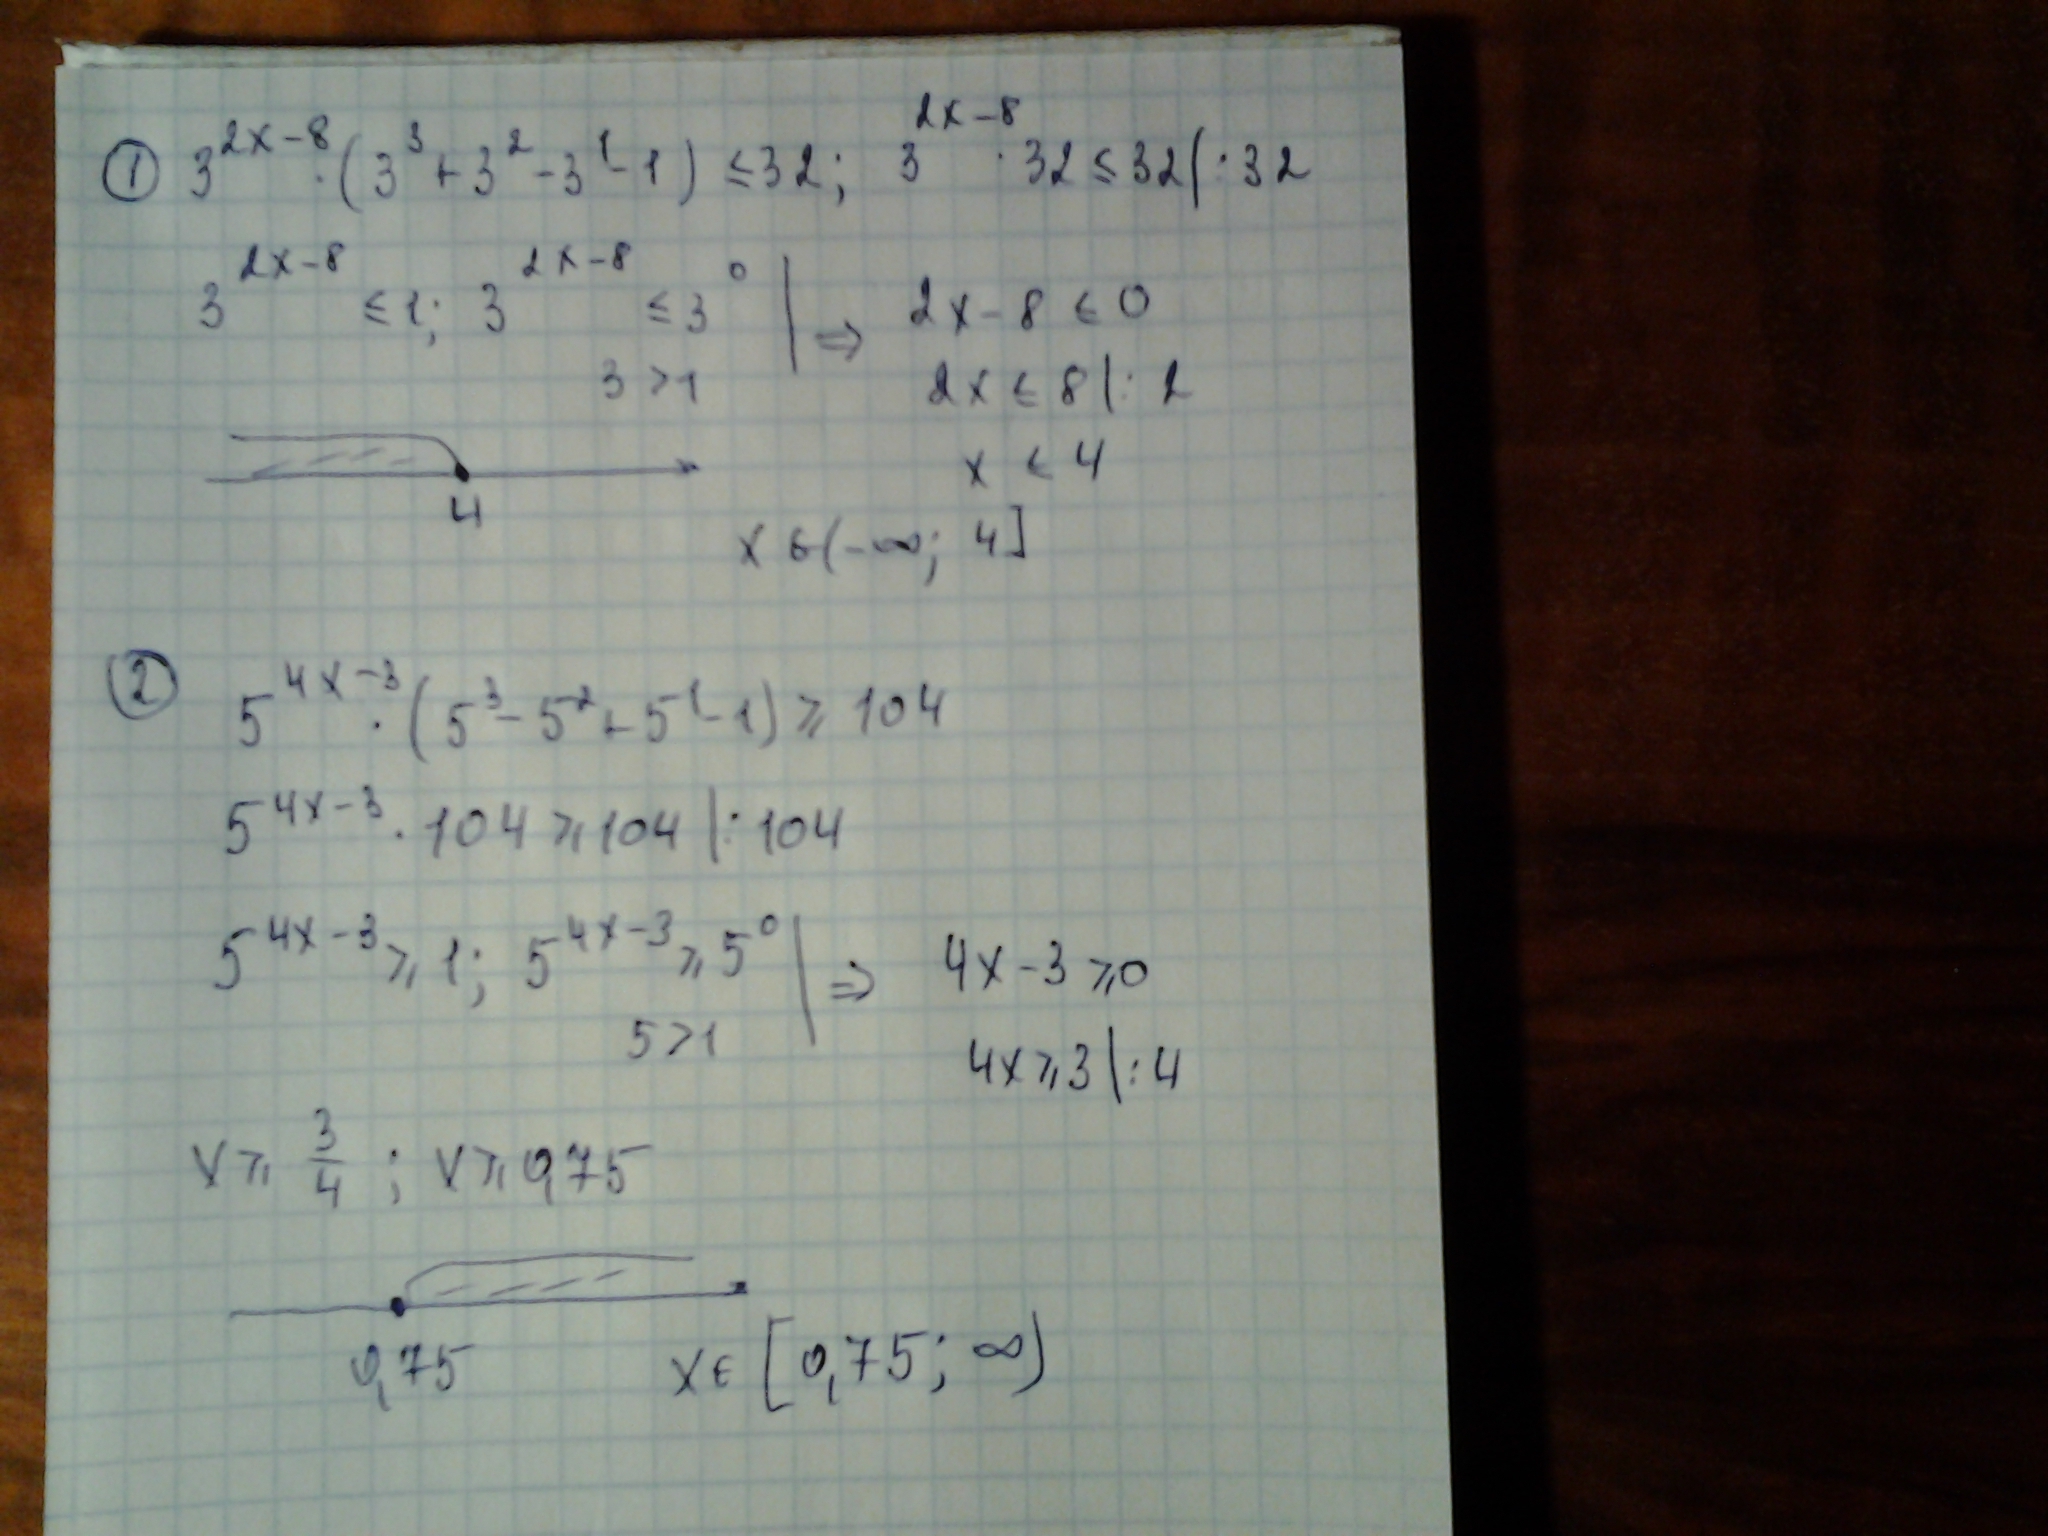 ① 3^(2x-8) · (3^3 + 3^2 - 3^1 - 1) ≤ 32; 3^(2x-8) · 32 ≤ 32 | : 32
3^(2x-8) ≤ 1; 3^(2x-8) ≤ 3^0 | ⇒ 2x - 8 ≤ 0
3 > 1 2x ≤ 8 | : 2
x ≤ 4
4
x ∈ (-∞; 4]
② 5^(4x-3) · (5^3 - 5^2 + 5^1 - 1) ≥ 104
5^(4x-3) · 104 ≥ 104 | : 104
5^(4x-3) ≥ 1; 5^(4x-3) ≥ 5^0 | ⇒ 4x - 3 ≥ 0
5 > 1 4x ≥ 3 | : 4
x ≥ 3/4 ; x ≥ 0,75
0,75 x ∈ [0,75; ∞)